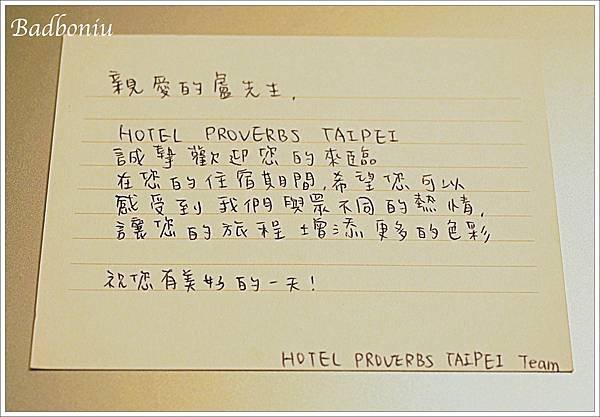 Badboniu
親愛的盧先生,
HOTEL PROVERBS TAIPEI
誠摯歡迎您的來臨
在您的住宿期間,希望您可以
感受到我們與眾不同的熱情,
讓您的旅程增添更多的色彩
祝您有美好的一天!
HOTEL PROVERBS TAIPEI Team